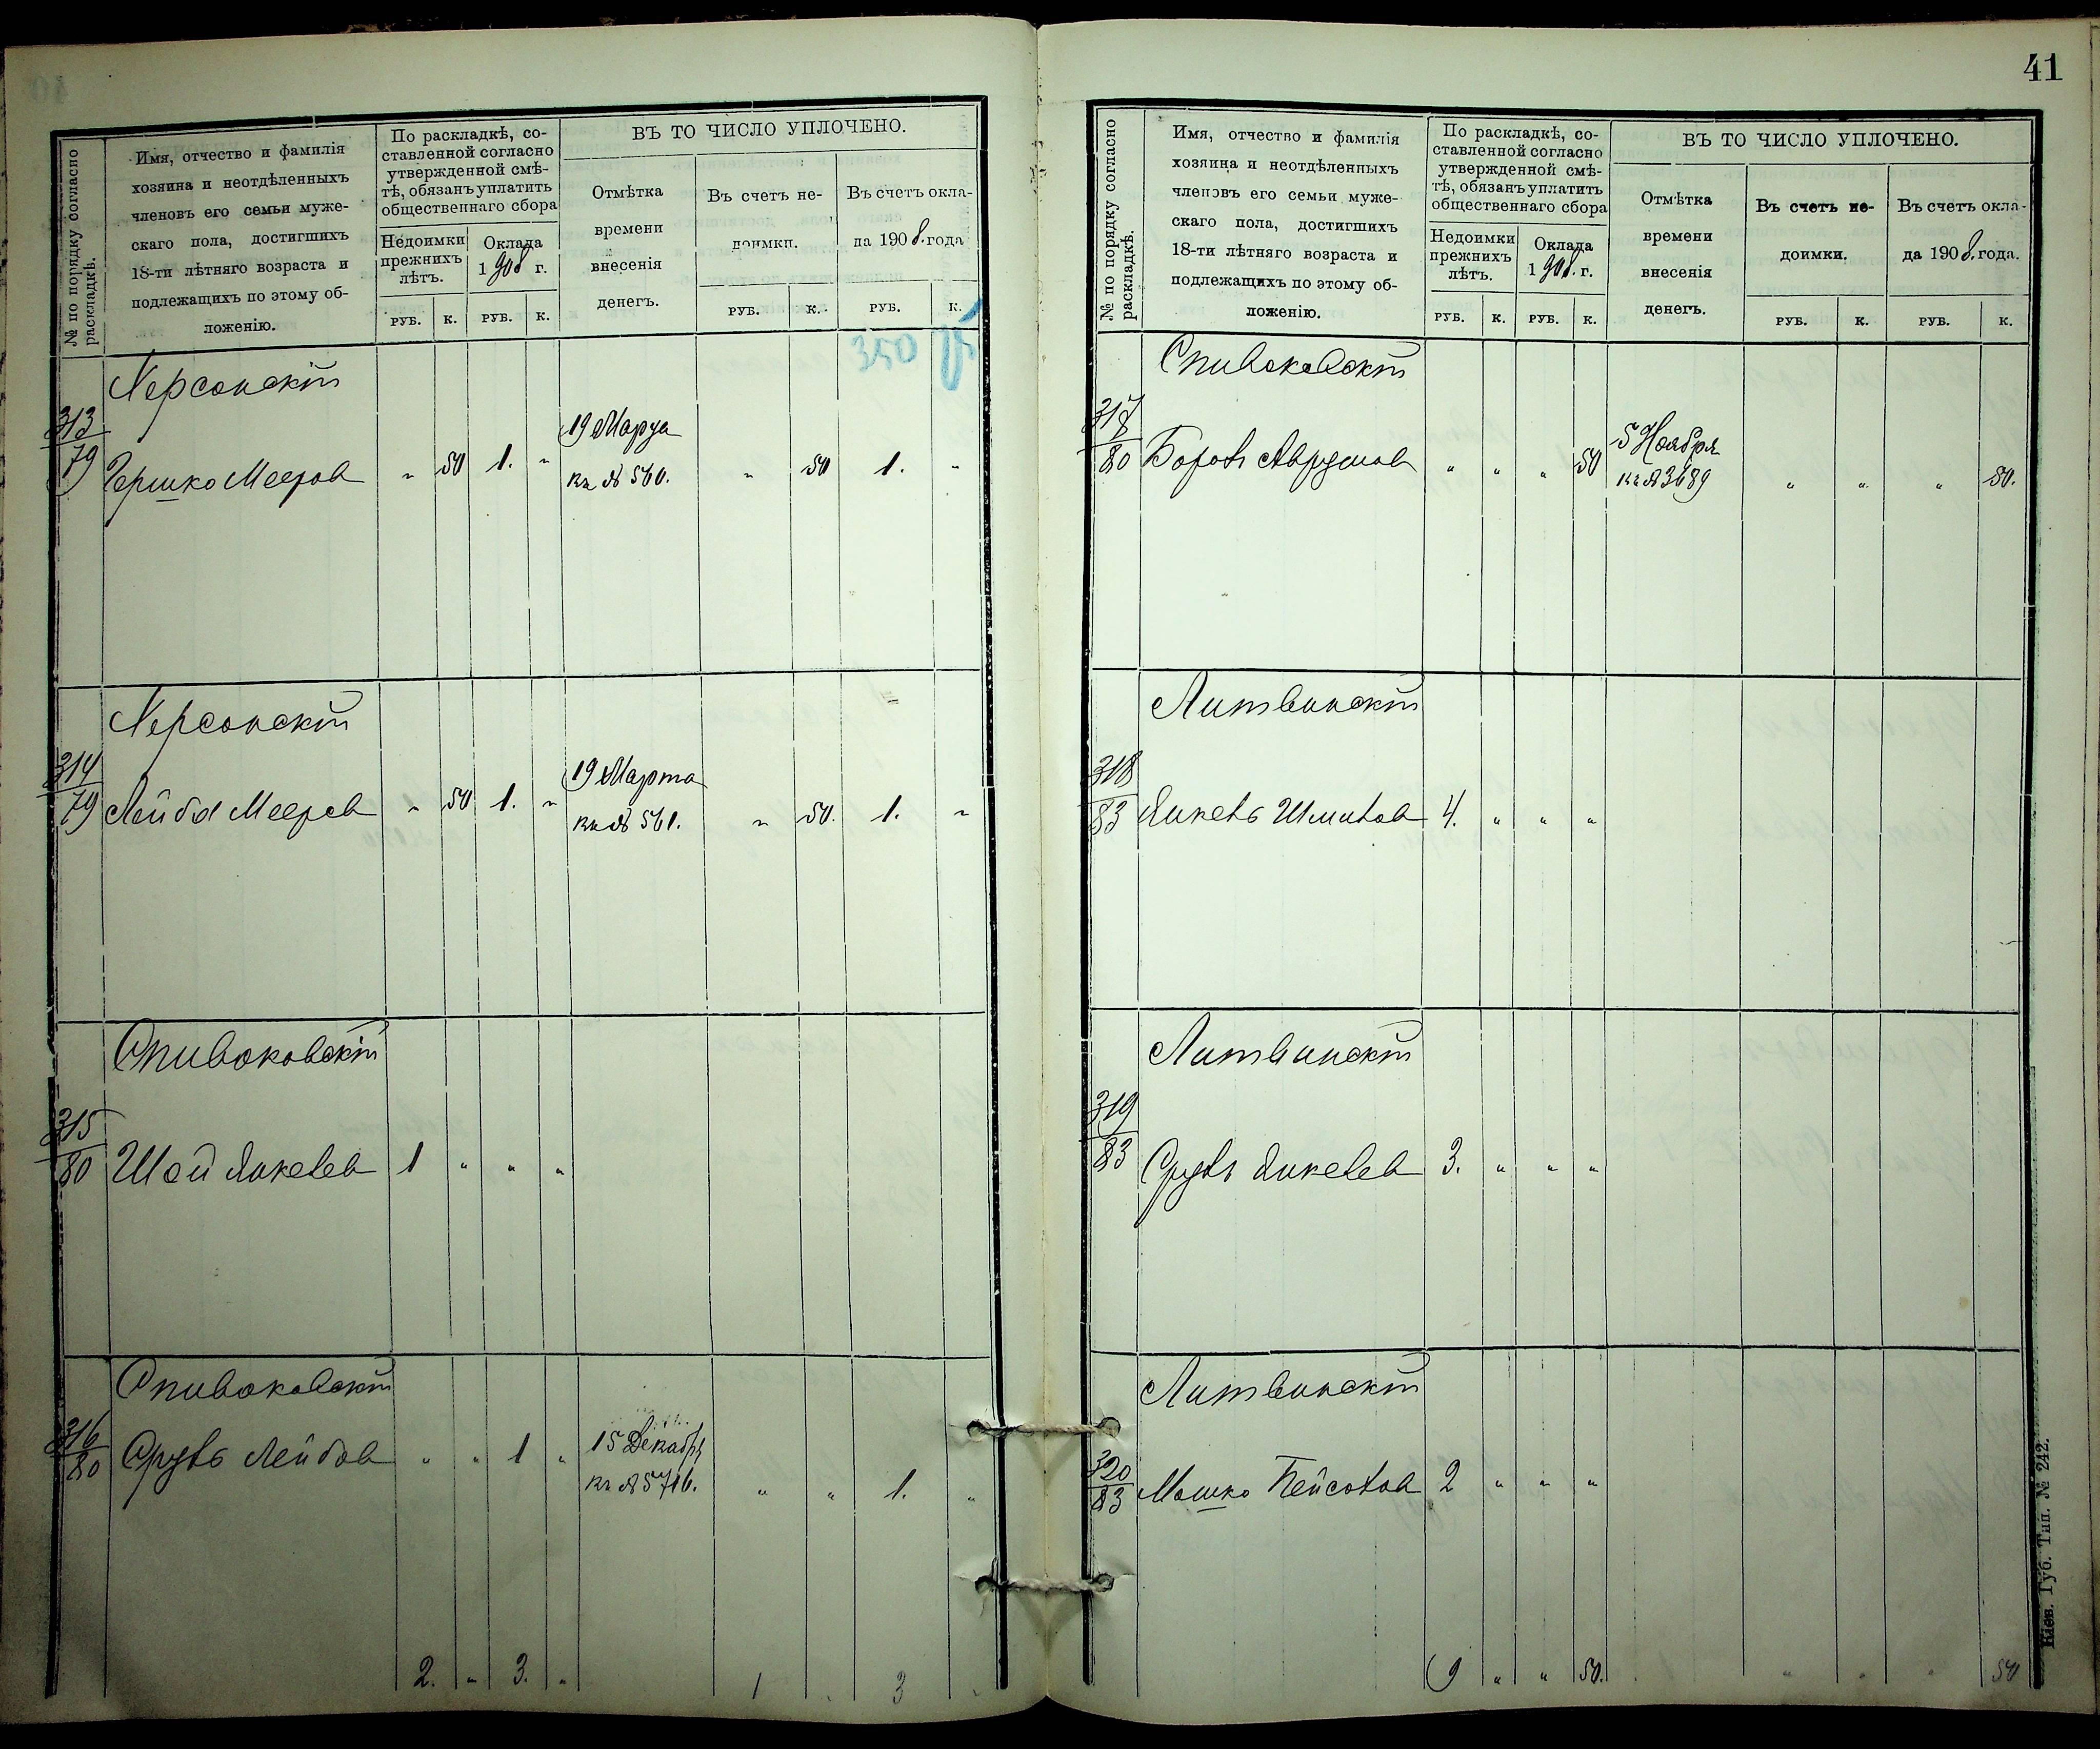 № по порядку согласно раскладкѣ.
Имя, отчество и фамилія
хозяина и неотдѣленныхъ
членовъ его семьи муже-
скаго пола, достигшихъ
18-ти лѣтняго возраста и
подлежащихъ по этому об-
ложенію.
По раскладкѣ, со-
ставленной согласно
утвержденной смѣ-
тѣ, обязанъ уплатить
общественнаго сбора
Недоимки
прежнихъ
лѣтъ.
Оклада
1908 г.
РУБ. К. РУБ. К.
ВЪ ТО ЧИСЛО УПЛОЧЕНО.
Отмѣтка
времени
внесенія
денегъ.
Въ счетъ не-
доимки.
РУБ. К.
Въ счетъ окла-
да 1908. года
РУБ. К.
350
Херсонскій
313/79 Гершко Мееров " 50 1. " 19 Марта
кв № 560. " 50 1. "
Херсонскій
314/79 Лейба Мееров " 50 1. " 19 Марта
кв № 561. " 50. 1. "
Спиваковскій
315/80 Шая Янкелев 1 " " "
Спиваковскій
316/80 Сруль Лейбов " " 1 " 15 Декабря
кв № 5716. " " 1. "
2. " 3. " 1 " 3 "
41
№ по порядку согласно раскладкѣ.
Имя, отчество и фамилія
хозяина и неотдѣленныхъ
членовъ его семьи муже-
скаго пола, достигшихъ
18-ти лѣтняго возраста и
подлежащихъ по этому об-
ложенію.
По раскладкѣ, со-
ставленной согласно
утвержденной смѣ-
тѣ, обязанъ уплатить
общественнаго сбора
Недоимки
прежнихъ
лѣтъ.
Оклада
1908. г.
РУБ. К. РУБ. К.
ВЪ ТО ЧИСЛО УПЛОЧЕНО.
Отмѣтка
времени
внесенія
денегъ.
Въ счетъ не-
доимки.
РУБ. К.
Въ счетъ окла-
да 1908. года.
РУБ. К.
Спиваковскій
317/80 Борох Аврумов " " " 50 5 Ноября
кв № 3689 " " " 50.
Литвинскій
318/83 Янкель Шмилов 4. " " "
Литвинскій
319/83 Сруль Янкелев 3. " " "
Литвинскій
320/83 Мошко Пейсахов 2 " " "
9 " " 50. " " " 50
Кіев. Губ. Тип. № 242.